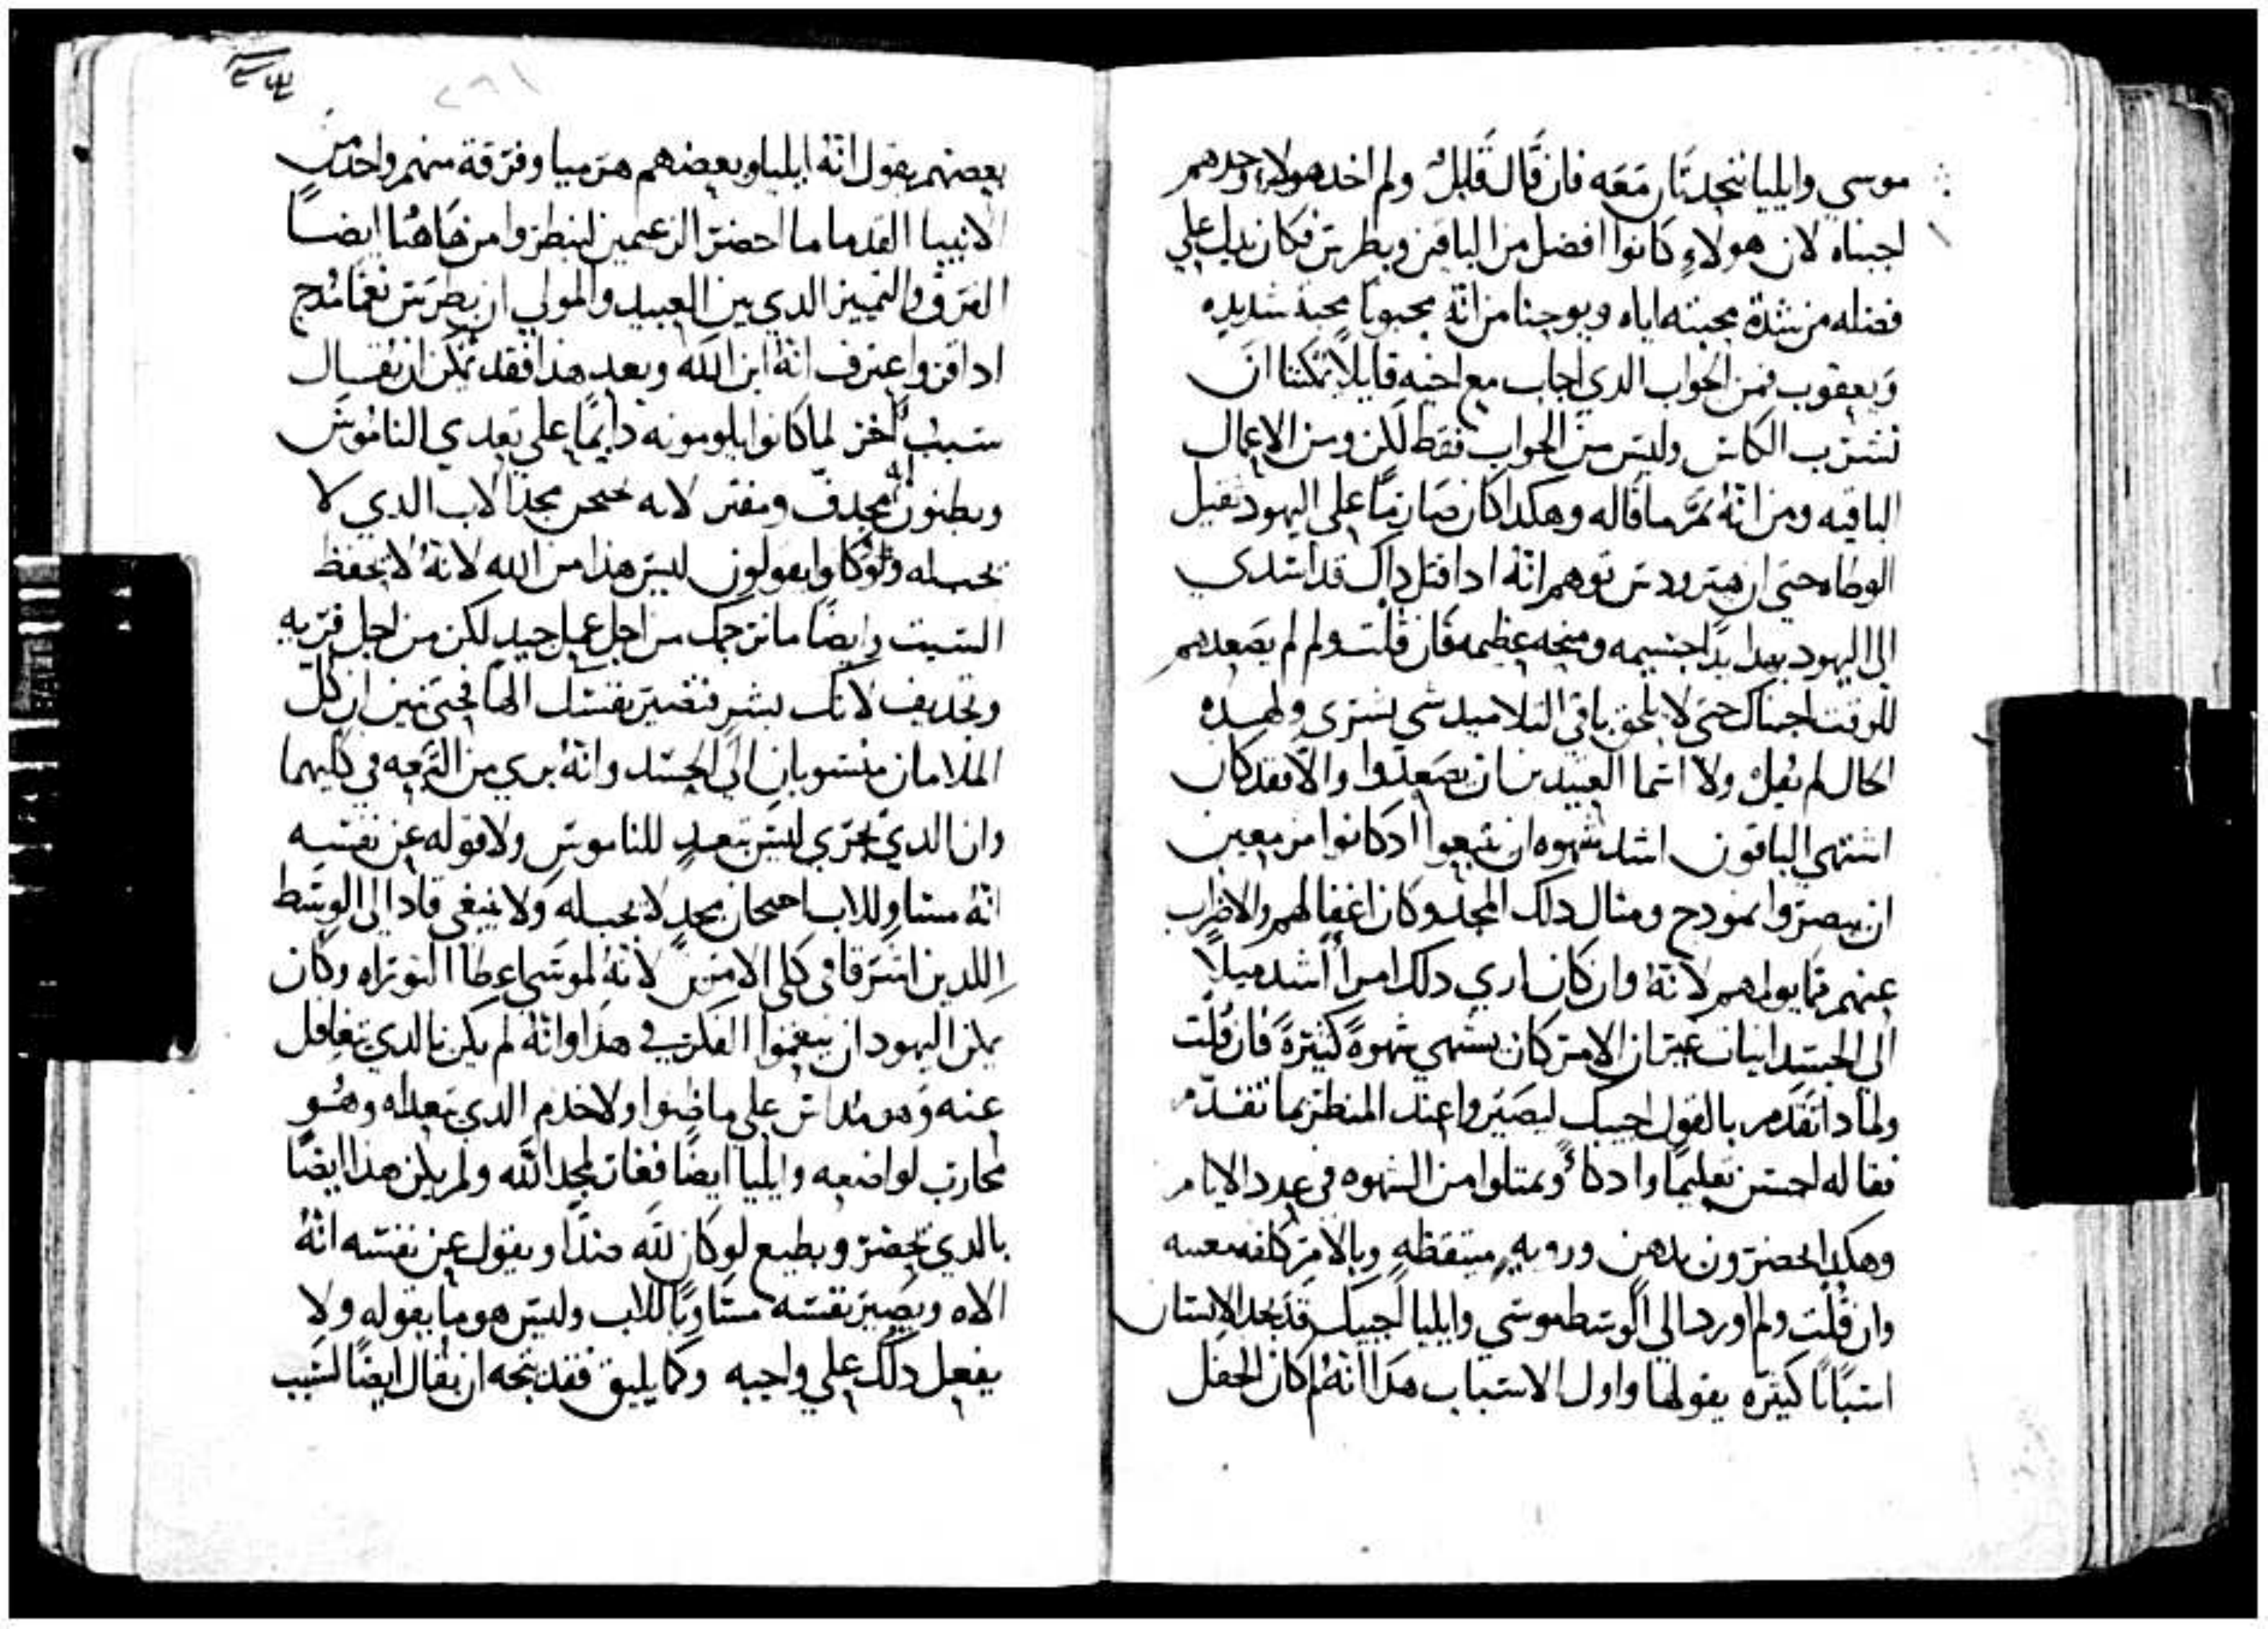 موسي وايليا يتحدثان معه فان قال قايل ولم اخد هولاء وحدهم
اجبناه لان هولاء كانوا افضل من الباقين وبطرس فكان يدل علي
فضله من شدة محبته اياه ويوحنا من انه محبوبا محبة شديده
ويعقوب فمن الجواب الدي اجاب مع اخيه قايلا يمكننا ان
نشرب الكاس وليس من الجواب فقط لكن ومن الاعمال
الباقيه ومن انه تمم ما قاله وهكدا كان صارما علي اليهود تقيل
الوطاه حتي ان هيرودس توهم انه ادا قتل داك قد اسدي
الي اليهود بهدا يدا جسيمه ومنحه عظيمه فان قلت ولم لم يصعدهم
للوقت اجبناك حتي لا يلحق باقي التلاميد شي بشري ولهده
الحال لم يقل ولا اسما العتيدين ان يصعدوا والا فقد كان
اشتهي الباقون اشد شهوه ان يتبعوا اد كانوا مزمعين
ان يبصروا نمودج ومثال دلك المجد وكان اغفالهم والاضراب
عنهم مما يولمهم لانه وان كان اري دلك امرا اشد ميلا
الي الجسدانيات غير ان الامر كان يشتهي شهوة كثيرة فان قلت
ولمادا تقدم بالقول اجيبك ليصيروا عند المنظر بما تقدم
فقاله احسن تعليما وادكا ويمتلوا من الشهوه في عدد الايام
وهكدا يحضرون بدهن ورويه متيقظه وبالامر كلفه معنيه
وان قلت ولم اورد الي الوسط موسي وايليا اجيبك قد يجد الانسان
اسبابا كثيره يقولها واول الاسباب هدا انه لما كان الحفل
بعضهم يقول انه ايليا وبعضهم هرميا وفرقة منهم واحد من
الانبيا القدما ما احضر الزعيمين لينظروا من هاهنا ايضا
الفرق والتمييز الدي بين العبيد والمولي ان بطرس نعما مدح
ادا قر واعترف انه ابن الله وبعد هدا فقد يمكن ان يقال
سبب اخر لما كانوا يلومونه دايما علي تعدي الناموس
ويظنون انه مجدف ومفتر لانه ينتحل مجد الاب الدي لا
يخصه وكانوا يقولون ليس هدا من الله لانه لا يحفظ
السبت وايضا ما نرجمك من اجل عمل جيد لكن من اجل فريه
وتجديف لانك بشر فتصير نفسك الها فحتي يبين ان كل
الملامان منسوبان الي الحسد وانه بري من التبعه في كليهما
وان الدي يجري ليس بتعد للناموس ولا قوله عن نفسه
انه مساو للاب انتحال مجد لا يخصه ولا ينبغي قاد الي الوسط
اللدين اشرقا في كلي الامرين لانه لموسي اعطا التوراه وكان
يمكن اليهود ان ينعموا الفكر في هدا وانه لم يكن بالدي يتغافل
عنه وهو مداس علي ما ظنوا ولا خدم الدي تعداه وهو
محارب لواضعه وايليا ايضا فغار لمجد الله ولم يكن هدا ايضا
بالدي يحضر ويطيع لو كان لله ضدا ويقول عن نفسه انه
الاه ويصير نفسه مساويا للاب وليس هو ما يقوله ولا
يفعل دلك علي واجبه وكما يليق فقد يتجه ان يقال ايضا لسبب